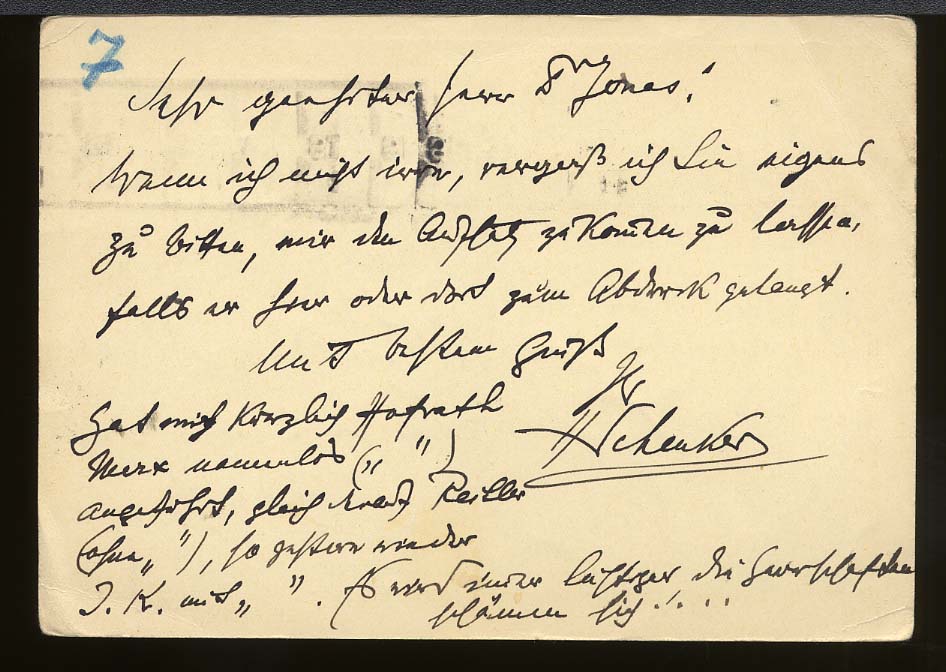 7
Sehr geehrter Herr Dr Jonas!
Wenn ich nicht irre, vergaß ich Sie eigens
zu bitten, mir den Aufsatz zukom̄en zu lassen,
falls er hier oder dort zum Abdruck gelangt.
Mit bestem Gruß
Ihr
HSchenker
Hat mich kürzlich Hofrath
Marx namenlos („ “)
angeführt, gleich darauf
(ohne „ “), so gestern wieder
J. K. mit „ “. Es wird im̄er lustiger die Herrschaften
schämen sich!....